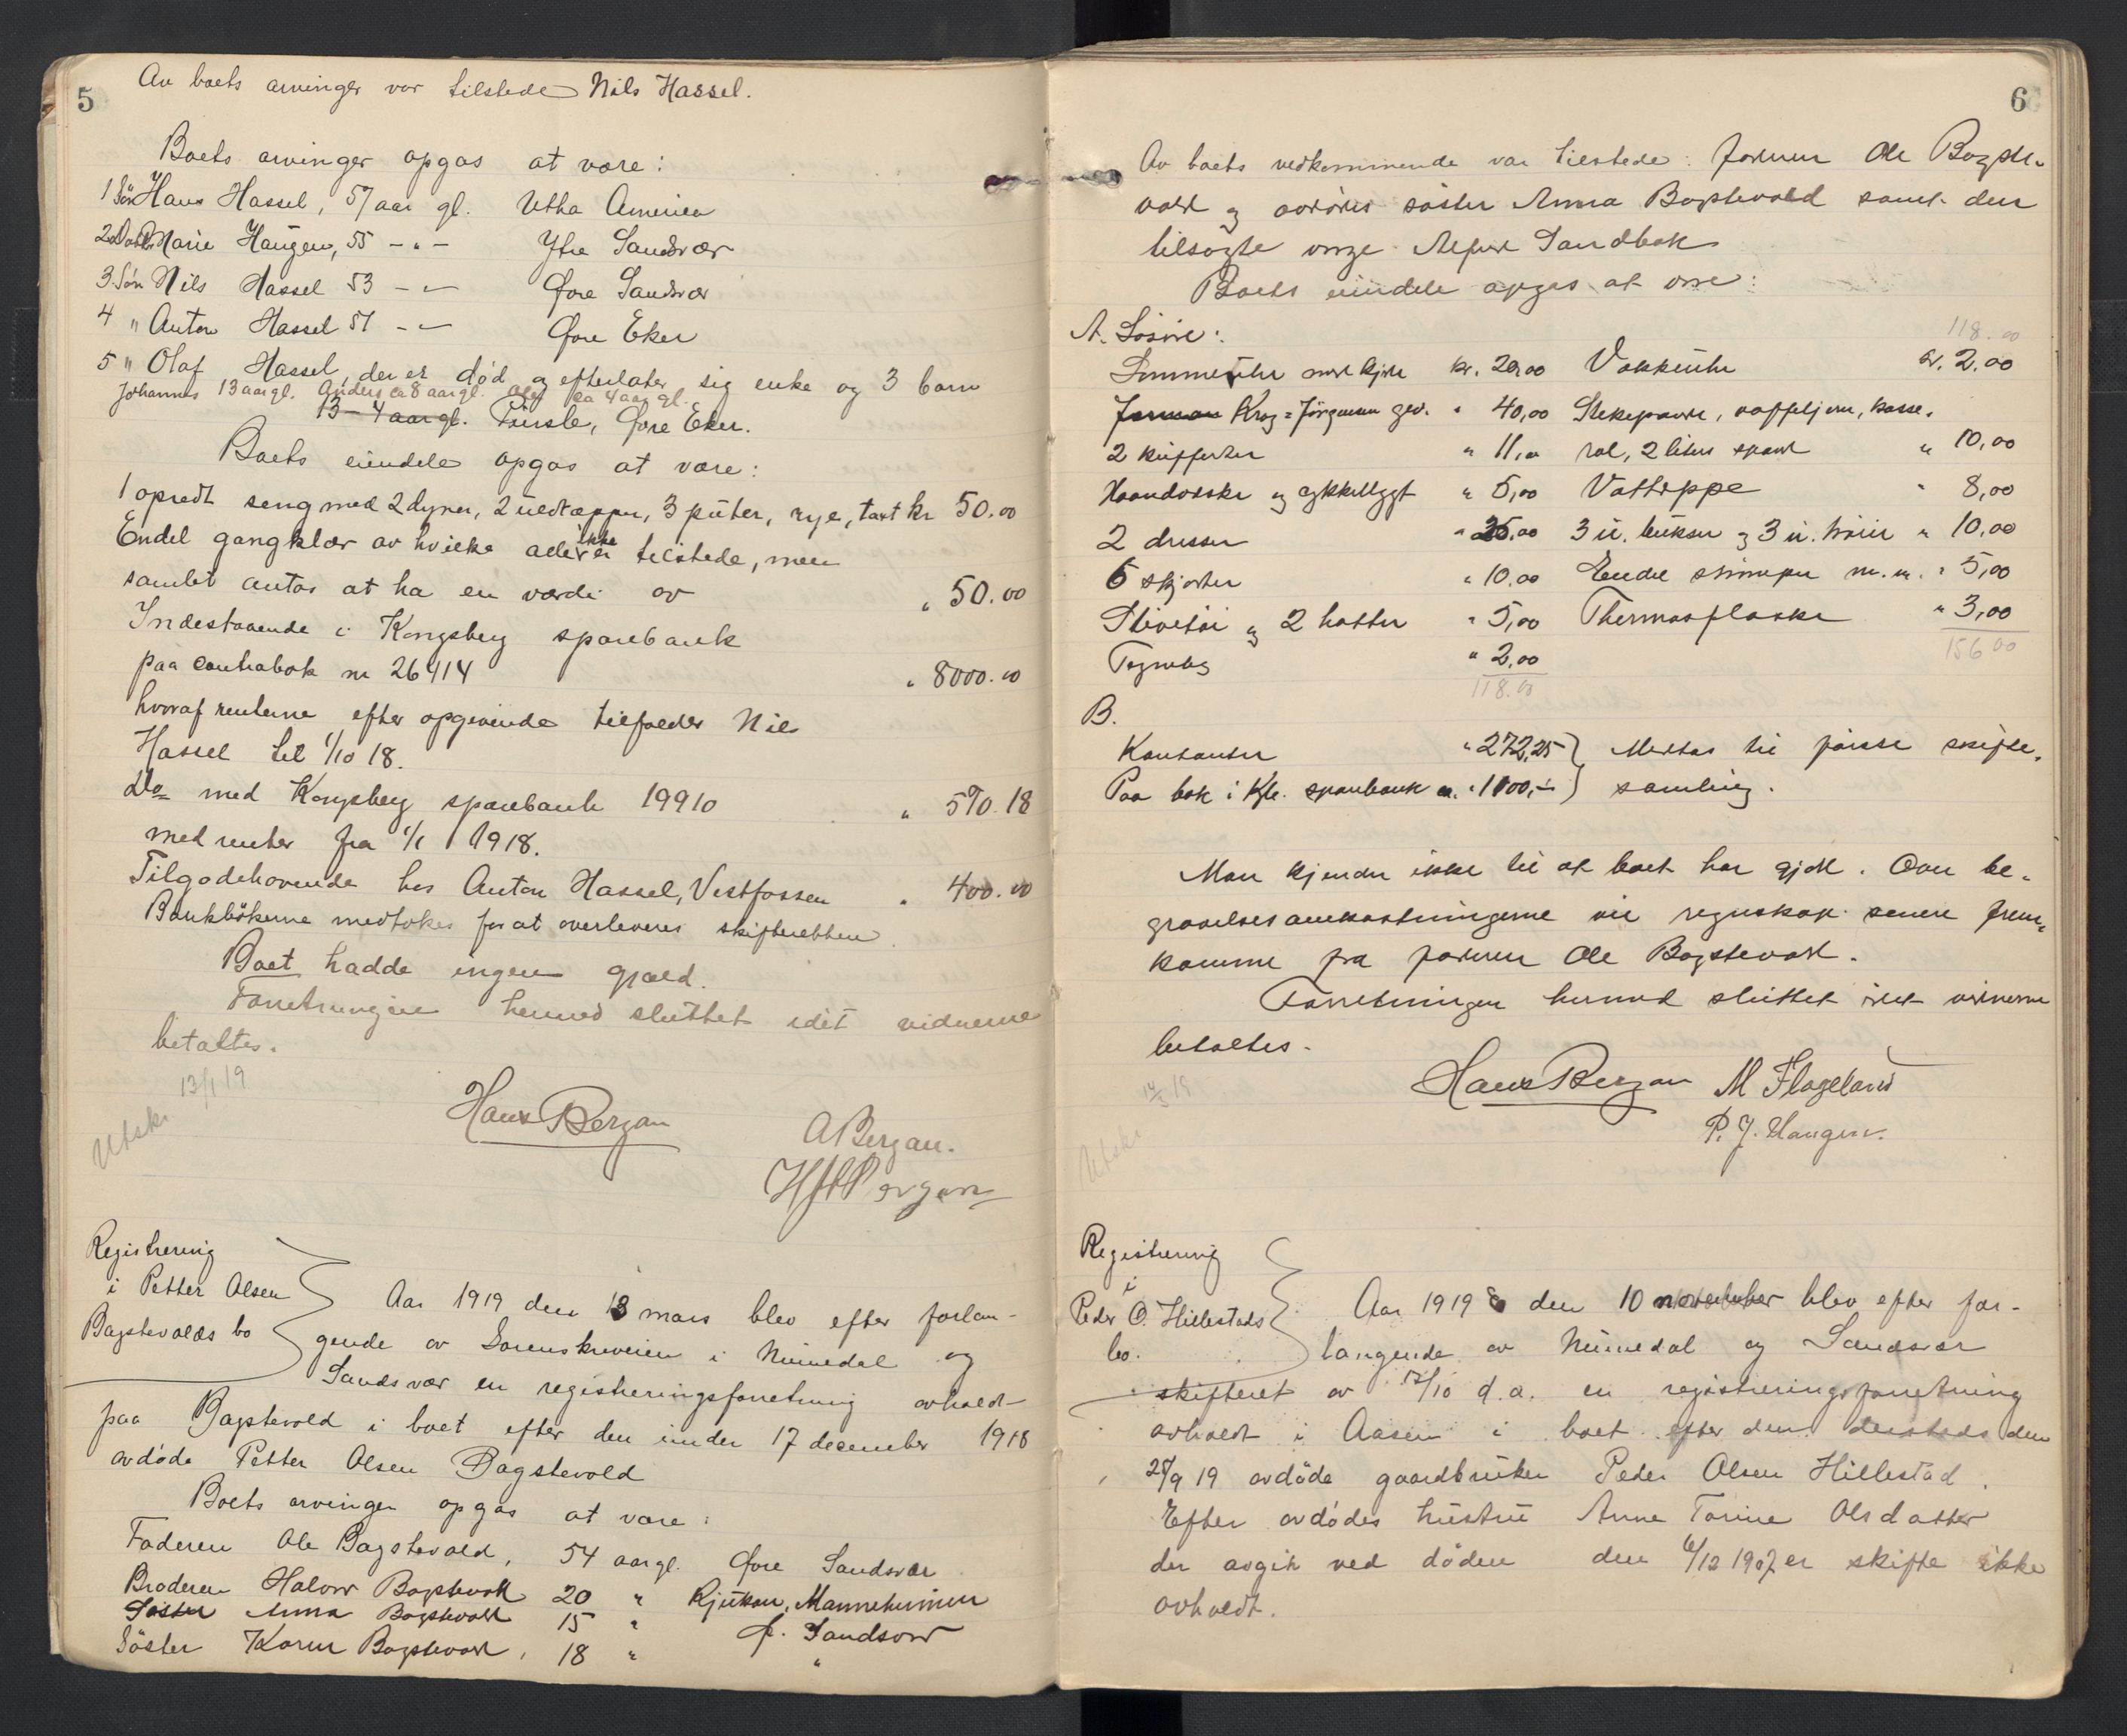 5
Av boets arvinger var tilstede Nils Hassel.
Boets arvinger opgas at være:
1 Søn Hans Hassel, 57 aar gl. Utha Amerika
2 Datter Marie Haugen, 55 -"- Ytre Sandsvær
3. Søn Nils Hassel 53 -"- Øvre Sandsvær
4 " Anton Hassel 51 -"- Øvre Eker
5 " Olaf Hassel, der er død og efterlater sig enke og 3 barn
Johannes 13 aar gl. Anders ca 8 aar gl. ca 4 aar gl.
13-4 aar gl. Pürsle, Øvre Eker.
Boets eiendele opgas at være:
1 opredt seng med 2 dyner, 2 uldtæpper, 3 puter, rye, taxt kr 50.00
Endel gangklær av hvilke alle ikke er tilstede, men
samlet antas at ha en værdi av " 50.00
Indestaaende i Kongsberg sparebank
paa contrabok nr 26414 " 8000.00
hvoraf renterne efter opgivende tilfalder Nils
Hassel til 1/10 18.
Do med Kongsberg sparebank 19910 " 590.18
med renter fra 1/1 1918.
Tilgodehavende hos Anton Hassel, Vestfossen " 400.00
Bankbökerne medtokes for at overleveres skifteretten.
Boet hadde ingen gjæld.
Forretningen hermed sluttet idet vidnerne
betaltes.
13/1 19
Utskr
Hans Bergan
A Bergan.
Bergan
Registrering
i Petter Olsen
Bagstevolds bo
Aar 1919 den 18 mars blev efter forlan-
gende av Sorenskriveren i Numedal og
Sandsvær en registreringsforretning avholdt
paa Bagstevold i boet efter den under 17 december 1918
avdøde Petter Olsen Bagstevold
Boets arvinger opgas at være:
Faderen Ole Bagstevold, 54 aar gl. Øvre Sandsvær
Broderen Halvor Bagstevold 20 " Rjukan, Mannheimen
Søster Anna Bagstevold 15 " Ø. Sandsvær
Söster Karen Bagstevold, 18 " "
6
Av boets vedkommende var tilstede: farmen Ole Bagste-
vold og avdødes søster Anna Bagstevold samt den
tilsagte verge Sandbæk
Boets eiendele opgas at være:
A. Løsøre:
118.00
Lommeuhr med kjede kr. 20.00 Vækkeuhr kr. 2,00
Krag=Jörgensen gev. " 40,00 Stekepande, vaffeljern, kasse-
2 kufferter " 11,00 rol, 2 liters spand " 10,00
Haandvæske og cykkellygt " 5,00 Vattæppe " 8,00
2 dresser " 25,00 3 u. bukser og 3 u. tröier " 10,00
6 skjorter " 10.00 Endel strømper m.m. " 5,00
Stivetöi og 2 hatter " 5,00 Thermosflaske " 3,00
" 2,00
118.00
156 00
B.
Kontanter " 272,25 } Medtas til første skifte-
Paa bok i Kbg. sparebank ca. " 1100,- } samling.
Man kjender ikke til at boet har gjæld. Over be-
gravelsesomkostningerne vil regnskap senere frem-
komme fra farmen Ole Bagstevold.
Forretningen hermed sluttet idet vidnerne
betaltes.
19
Utskr
Hans Bergan M Flageland
P. J. Haugen.
Registrering
i
Peder O. Hillestads
bo.
Aar 1919 den 10 november blev efter for-
langende av Numedal og Sandsvær
skifteret av 15/10 d.a. en registreringsforretning
avholdt i Aasen i boet efter den dersteds den
25/9 19 avdöde gaardbruker Peder Olsen Hillestad.
Efter avdødes hustru Anne Torine Olsdatter
der avgik ved döden den 6/12 1907 er skifte ikke
avholdt.